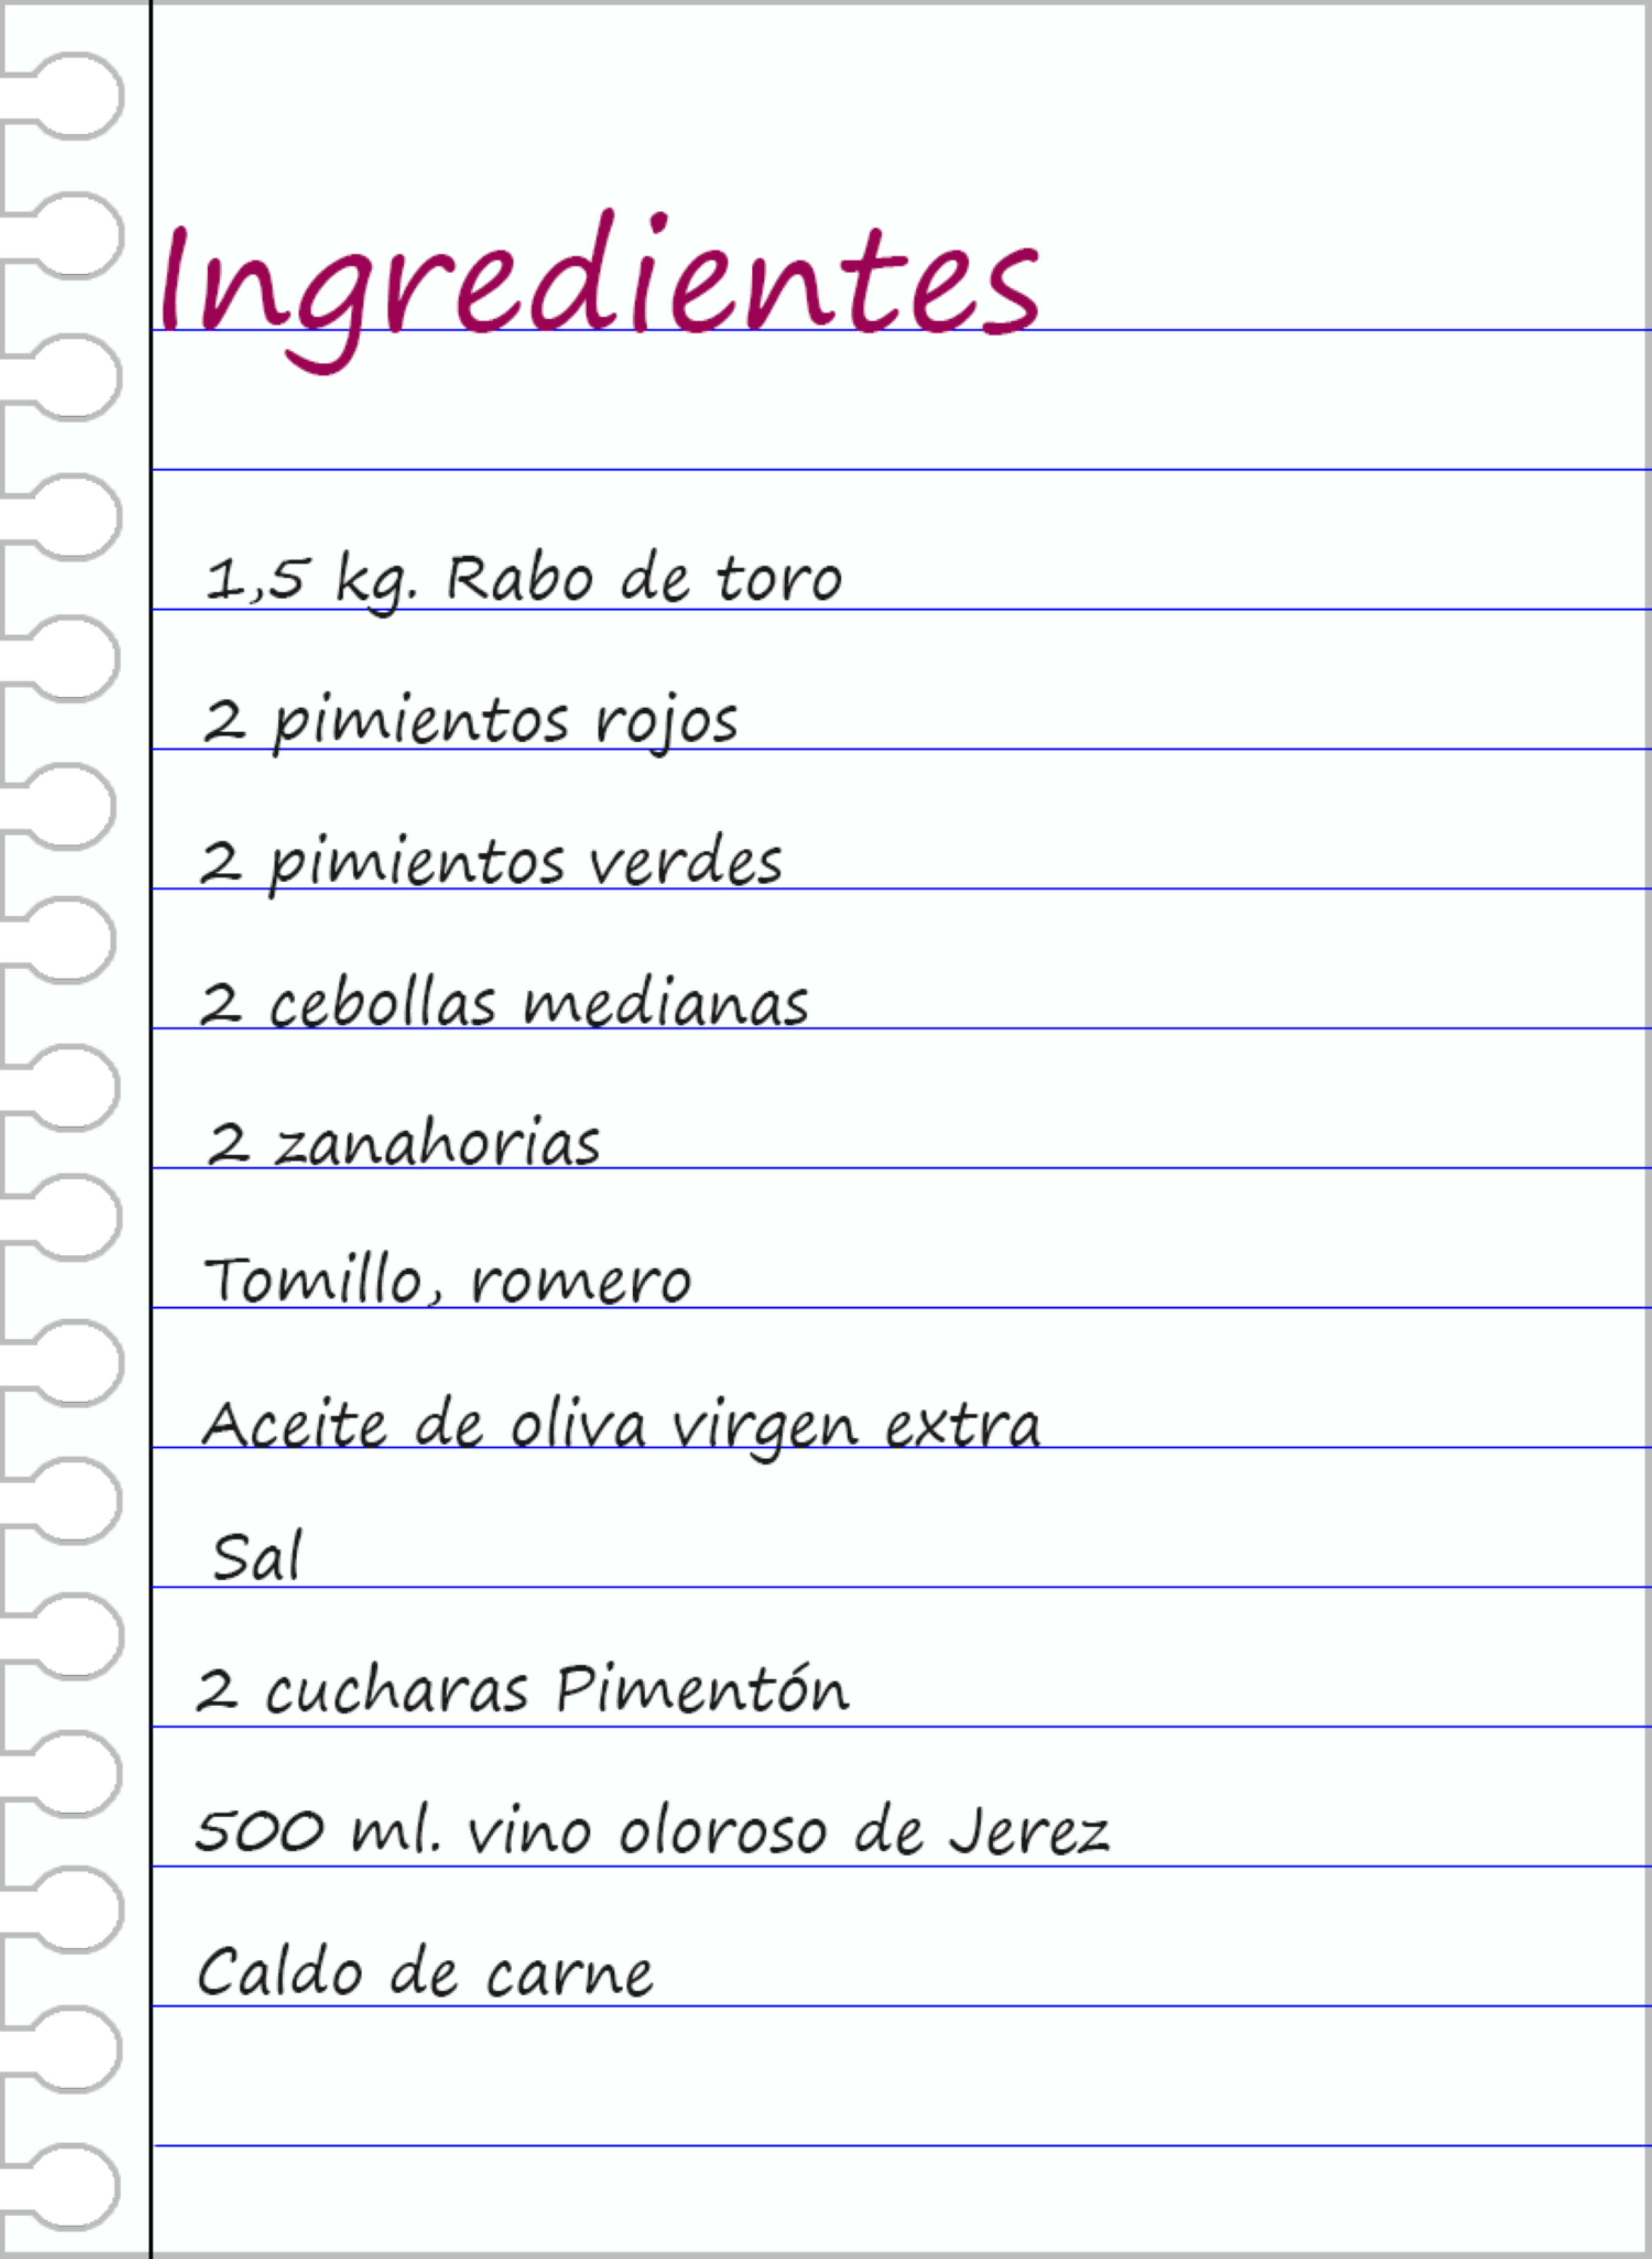 Ingredientes
1,5 kg. Rabo de toro
2 pimientos rojos
2 pimientos verdes
2 cebollas medianas
2 zanahorias
Tomillo, romero
Aceite de oliva virgen extra
Sal
2 cucharas Pimentón
500 ml. vino oloroso de Jerez
Caldo de carne